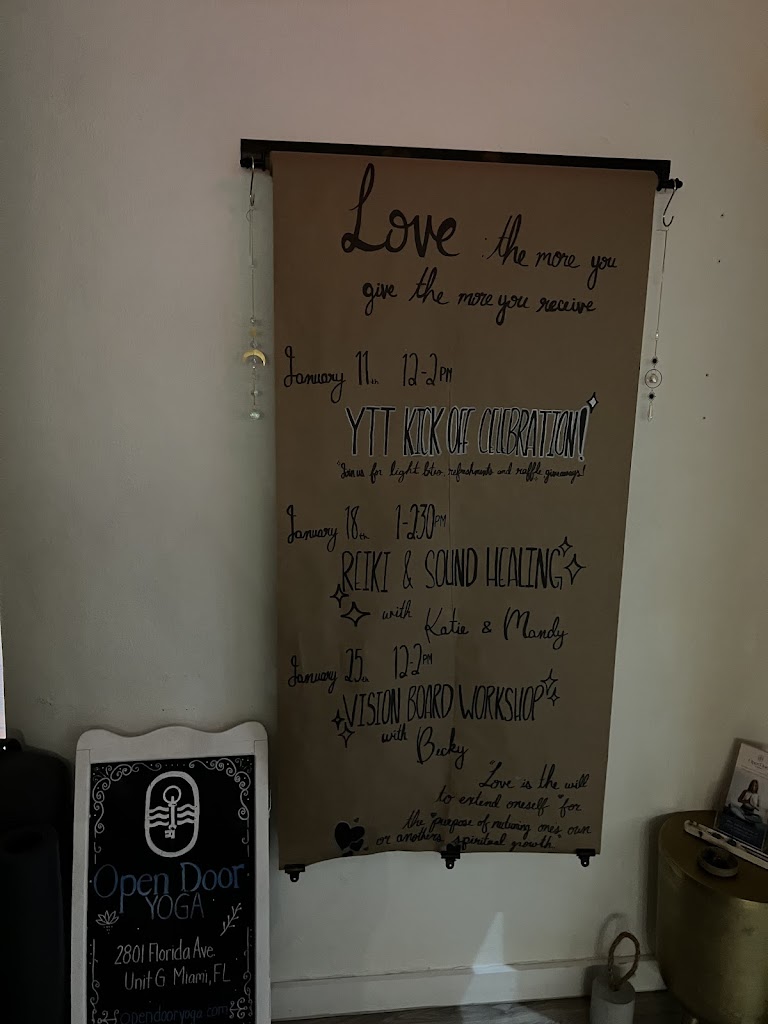 Love the more you
give the more you receive
January 11th 12-2PM
YTT KICK OFF CELEBRATION!
"Join us for light bites, refreshments and raffle giveaways!
January 18th 1-2:30PM
REIKI & SOUND HEALING
with Katie & Mandy
January 25th 12-2PM
VISION BOARD WORKSHOP
with Becky
"Love is the will
to extend oneself "for
the "purpose of nuturing one's own
or another's spiritual growth"
Open Door
YOGA
2801 Florida Ave
Unit G Miami, FL
opendooryoga.com